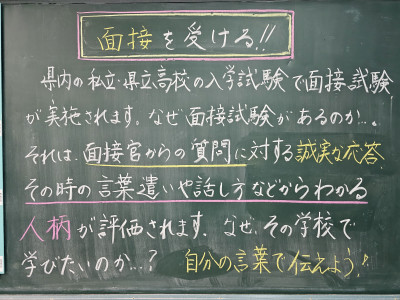 面接を受ける!!
県内の私立・県立高校の入学試験で面接試験
が実施されます。なぜ面接試験があるのか…。
それは、面接官からの質問に対する誠実な応答、
その時の言葉遣いや話し方などからわかる
人柄が評価されます。なぜ、その学校で
学びたいのか…? 自分の言葉で伝えよう!